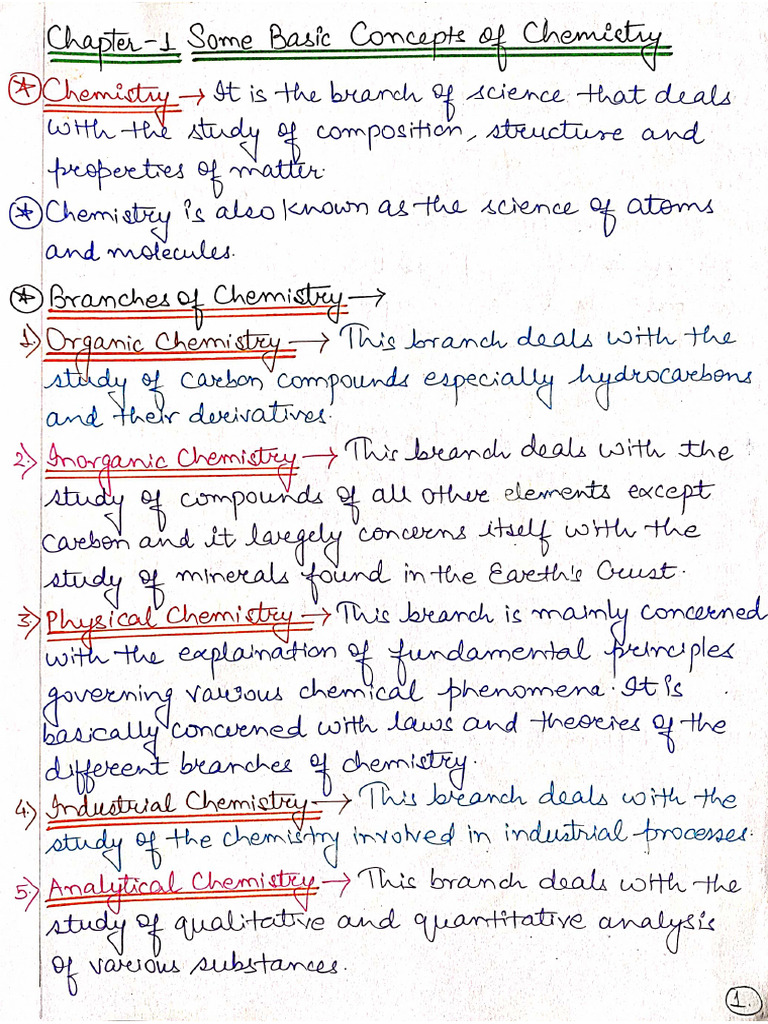 Chapter-1 Some Basic Concepts of Chemistry
⍟ Chemistry → It is the branch of science that deals
with the study of composition, structure and
properties of matter.
⍟ Chemistry is also known as the science of atoms
and molecules.
⍟ Branches of Chemistry →
1.) Organic Chemistry → This branch deals with the
study of carbon compounds especially hydrocarbons
and their derivatives.
2.) Inorganic Chemistry → This branch deals with the
study of compounds of all other elements except
carbon and it largely concerns itself with the
study of minerals found in the Earth's Crust.
3.) Physical Chemistry → This branch is mainly concerned
with the explaination of fundamental principles
governing various chemical phenomena. It is
basically concerned with laws and theories of the
different branches of chemistry.
4.) Industrial Chemistry → This branch deals with the
study of the chemistry involved in industrial processes.
5.) Analytical Chemistry → This branch deals with the
study of qualitative and quantitative analysis
of various substances.
1.